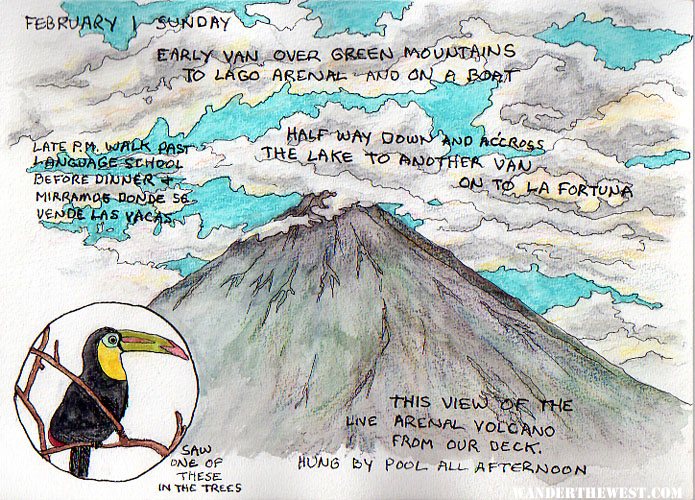 FEBRUARY 1 SUNDAY
EARLY VAN OVER GREEN MOUNTAINS
TO LAGO ARENAL AND ON A BOAT
HALF WAY DOWN AND ACCROSS
THE LAKE TO ANOTHER VAN
ON TO LA FORTUNA
LATE P.M. WALK PAST
LANGUAGE SCHOOL
BEFORE DINNER +
MIRRAMOS DONDE SE
VENDE LAS VACAS
THIS VIEW OF THE
LIVE ARENAL VOLCANO
FROM OUR DECK.
HUNG BY POOL ALL AFTERNOON
SAW
ONE OF
THESE
IN THE TREES
WANDERTHEWEST.COM